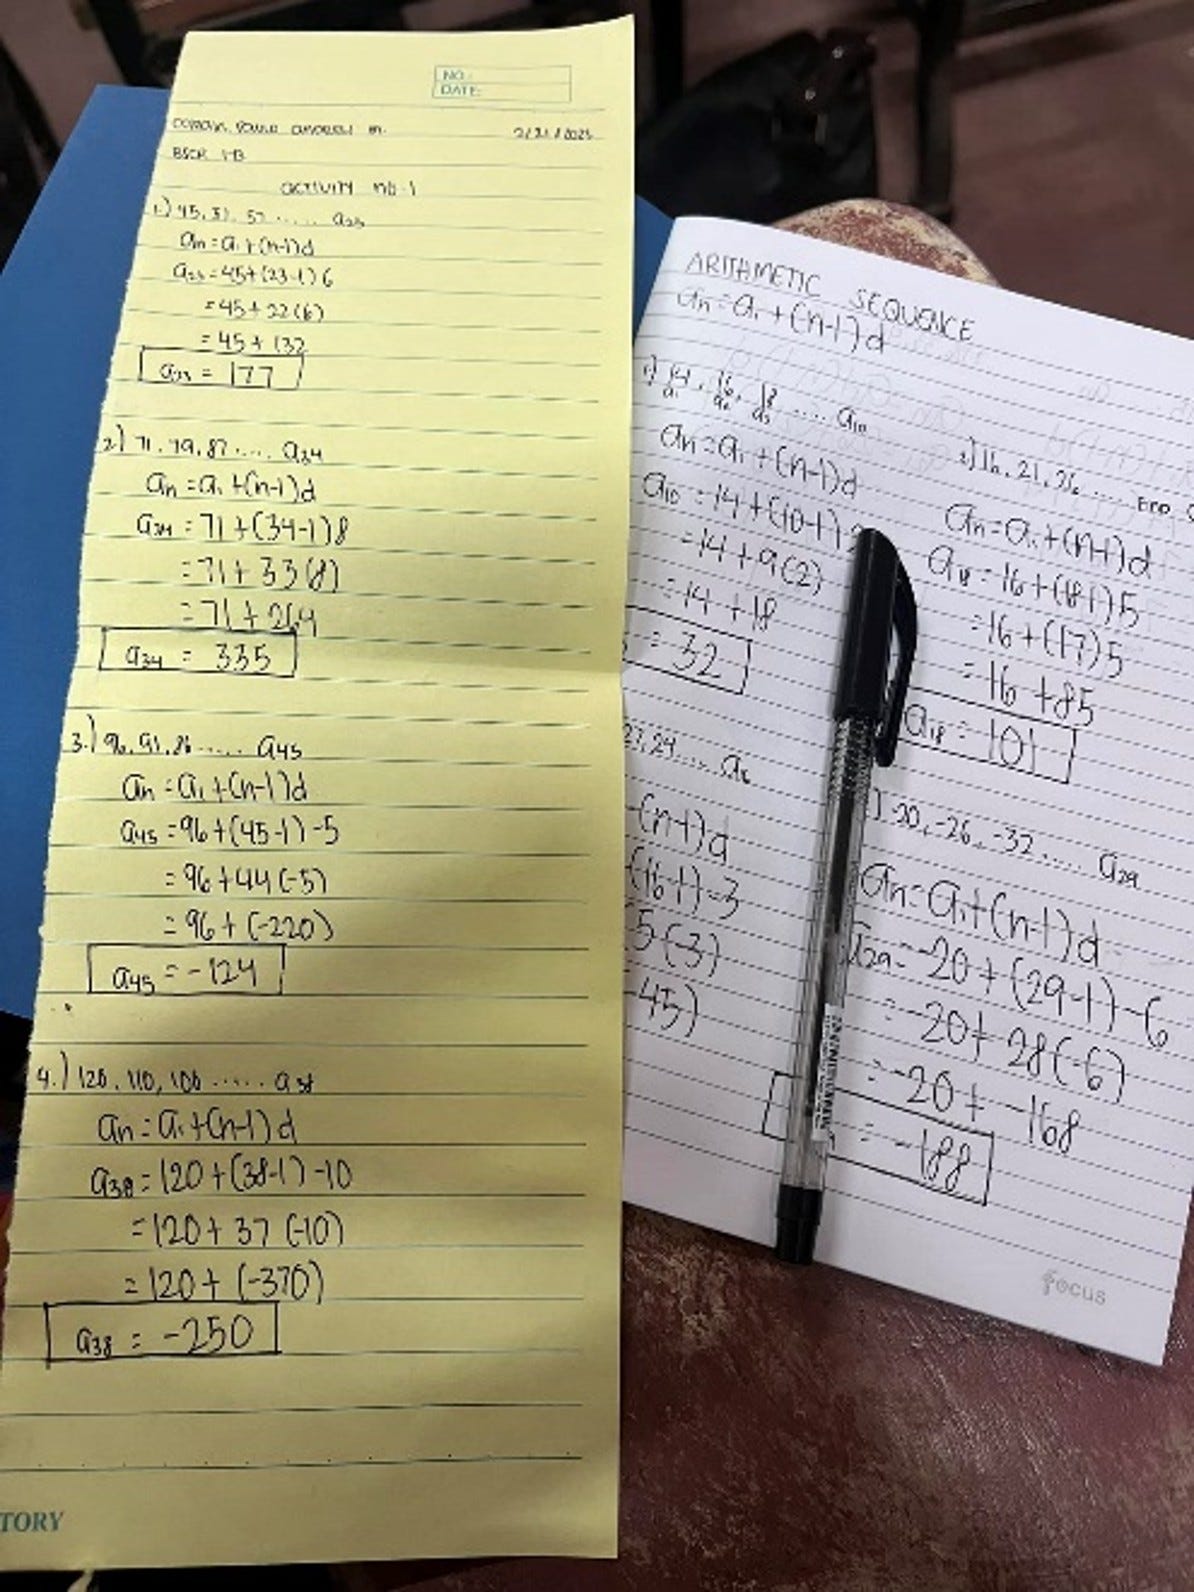 NO.:
DATE:
2/21/2025
ACTIVITY NO. 1
1.) 45, 51, 57 ...... a23
an = a1 + (n-1)d
a23 = 45 + (23-1) 6
= 45 + 22 (6)
= 45 + 132
a23 = 177
2.) 71, 79, 87 ..... a34
an = a1 + (n-1)d
a34 = 71 + (34-1) 8
= 71 + 33 (8)
= 71 + 264
a34 = 335
3.) 96, 91, 86 ...... a45
an = a1 + (n-1)d
a45 = 96 + (45-1) -5
= 96 + 44 (-5)
= 96 + (-220)
a45 = -124
4.) 120, 110, 100 ...... a38
an = a1 + (n-1)d
a38 = 120 + (38-1) -10
= 120 + 37 (-10)
= 120 + (-370)
a38 = -250
TORY
ARITHMETIC SEQUENCE
an = a1 + (n-1)d
1.) 14, 16, 18 ..... a10
a1 a2 a3
an = a1 + (n-1)d
a10 = 14 + (10-1) 2
= 14 + 9 (2)
= 14 + 18
= 32
2.) 16, 21, 26 .....
an = a1 + (n-1)d
a18 = 16 + (18-1) 5
= 16 + (17) 5
= 16 + 85
a18 = 101
27, 24 .....
(n-1)d
(16-1) -3
5 (-3)
-45)
) -20, -26, -32 ..... a29
an = a1 + (n-1)d
a29 = -20 + (29-1) -6
= -20 + 28 (-6)
= -20 + -168
= -188
focus